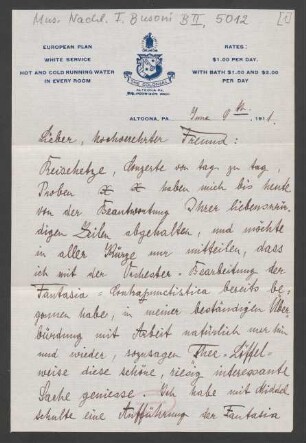 Mus. Nachl. F. Busoni B II, 5012
[1]
EUROPEAN PLAN
WHITE SERVICE
HOT AND COLD RUNNING WATER
IN EVERY ROOM
RATES:
$1.00 PER DAY.
WITH BATH $1.50 AND $2.00
PER DAY
THE COLONIAL
ALTOONA, PA.
ALTOONA, PA. June 9th 1911.
Lieber, hochverehrter Freund:
Reisehetze, Conzerte von tag zu tag,
Proben haben mich bis heute
von der Beantwortung Ihrer liebenswür-
digen Zeilen abgehalten, und möchte
in aller Kürze nur mitteilen, dass
ich mit der Orchester-Bearbeitung der
Fantasia-Contrapunctistica bereits be-
gonnen habe, in meiner beständigen Über-
bürdung mit Arbeit natürlich nur hin
und wieder, sozusagen Thee-Löffel-
weise diese schöne, riesig interessante
Sache geniesse. Ich habe mit
eine Aufführung der Fantasia